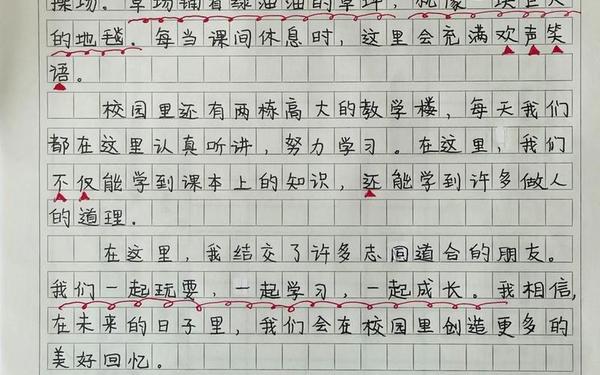 操场。草场铺着绿油油的草坪,就像一块巨大
的地毯。每当课间休息时,这里会充满欢声笑
语。
校园里还有两栋高大的教学楼,每天我们
都在这里认真听讲,努力学习。在这里,我们
不仅能学到课本上的知识,还能学到许多做人
的道理。
在这里,我结交了许多志同道合的朋友。
我们一起玩耍,一起学习,一起成长。我相信,
在未来的日子里,我们会在校园里创造更多的
美好回忆。